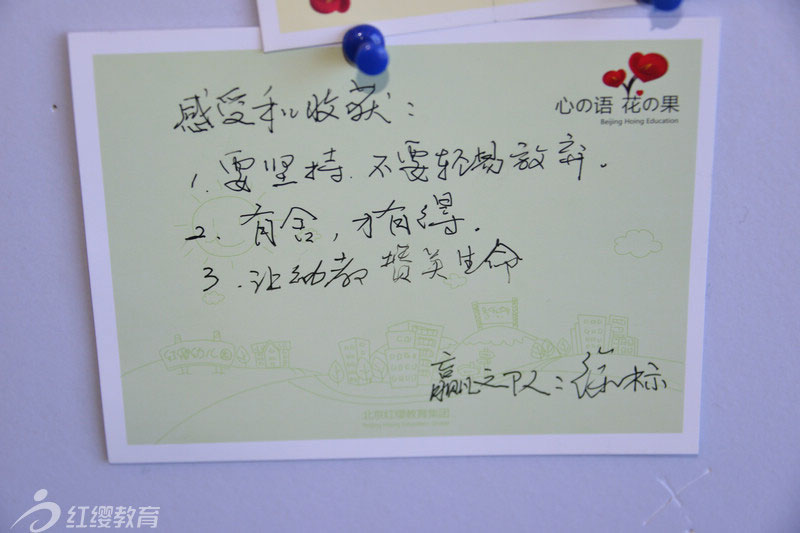 心の语 花の果
Beijing Hoing Education
感受和收获：
1. 要坚持.不要轻易放弃。
2. 有舍，才有得.
3. 让幼教 赞美生命
赢之队：徐标
北京红缨教育集团
Beijing Hoing Education Group
红缨教育